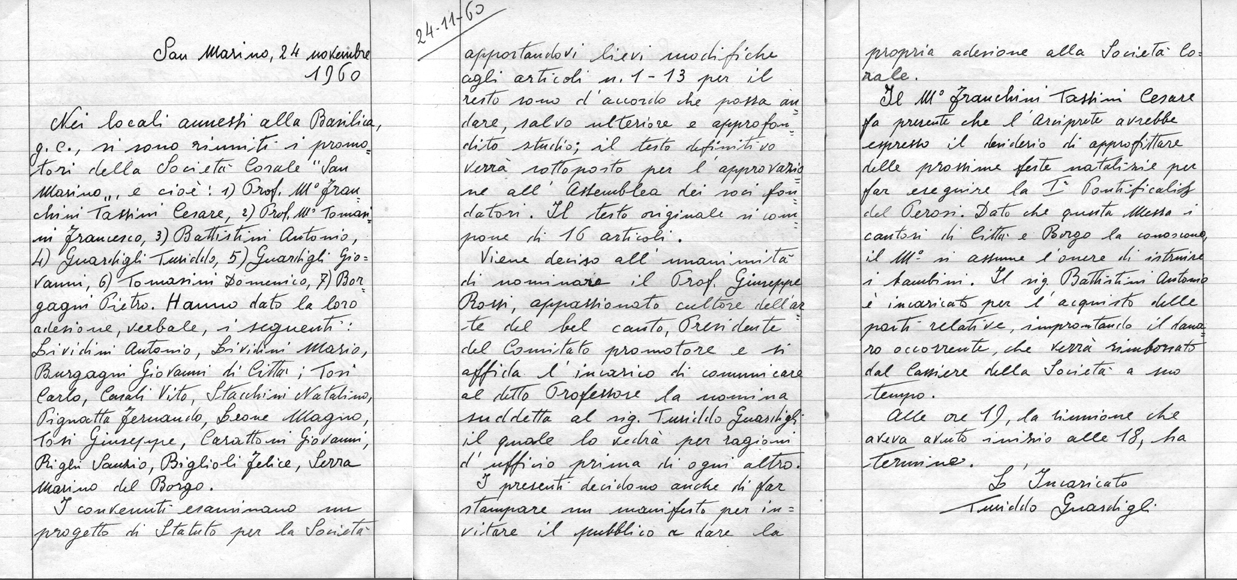 San Marino, 24 novembre
1960
Nei locali annessi alla Basilica,
g.c., si sono riuniti i promo-
tori della Società Corale "San
Marino,, e cioè: 1) Prof. M° Fran
chini Tassini Cesare, 2) Prof. M° Tomasi
ni Francesco, 3) Battistini Antonio,
4) Guardigli Turiddo, 5) Guardigli Gio-
vanni, 6) Tomasini Domenico, 7) Bur-
gagni Pietro. Hanno dato la loro
adesione, verbale, i seguenti:
Lividini Antonio, Lividini Mario,
Burgagni Giovanni di Città; Tosi
Carlo, Casali Vito, Stacchini Natalino,
Pignatta Fernando, Leone Magno,
Tosi Giuseppe, Carattoni Giovanni,
Righi Sanzio, Biglioli Felice, Serra
Marino del Borgo.
I convenuti esaminano un
progetto di Statuto per la Società
24-11-60
apportandovi lievi modifiche
agli articoli n. 1-13 per il
resto sono d'accordo che possa an
dare, salvo ulteriore e approfon
dito studio; il testo definitivo
verrà sottoposto per l'approvazio
ne all'Assemblea dei soci fon
datori. Il testo originale si com
pone di 16 articoli.
Viene deciso all'unanimità
di nominare il Prof. Giuseppe
Rossi, appassionato cultore dell'ar
te del bel canto, Presidente
del Comitato promotore e si
affida l'incarico di comunicare
al detto Professore la nomina
suddetta al sig. Turiddo Guardigli
il quale lo vedrà per ragioni
d'ufficio prima di ogni altro.
I presenti decidono anche di far
stampare un manifesto per in=
vitare il pubblico a dare la
propria adesione alla Società Co=
rale.
Il M° Franchini Tassini Cesare
fa presente che l'Arciprete avrebbe
espresso il desiderio di approfittare
delle prossime feste natalizie per
far eseguire la Iª Pontificalis
del Perosi. Dato che questa Messa i
cantori di Città e Borgo la conoscono,
il M° si assume l'onere di istruire
i bambini. Il sig. Battistini Antonio
è incaricato per l'acquisto delle
parti relative, improntando il dana
ro occorrente, che verrà rimborsato
dal Cassiere della Società a suo
tempo.
Alle ore 19, la riunione che
aveva avuto inizio alle 18, ha
termine.
L'Incaricato
Turiddo Guardigli